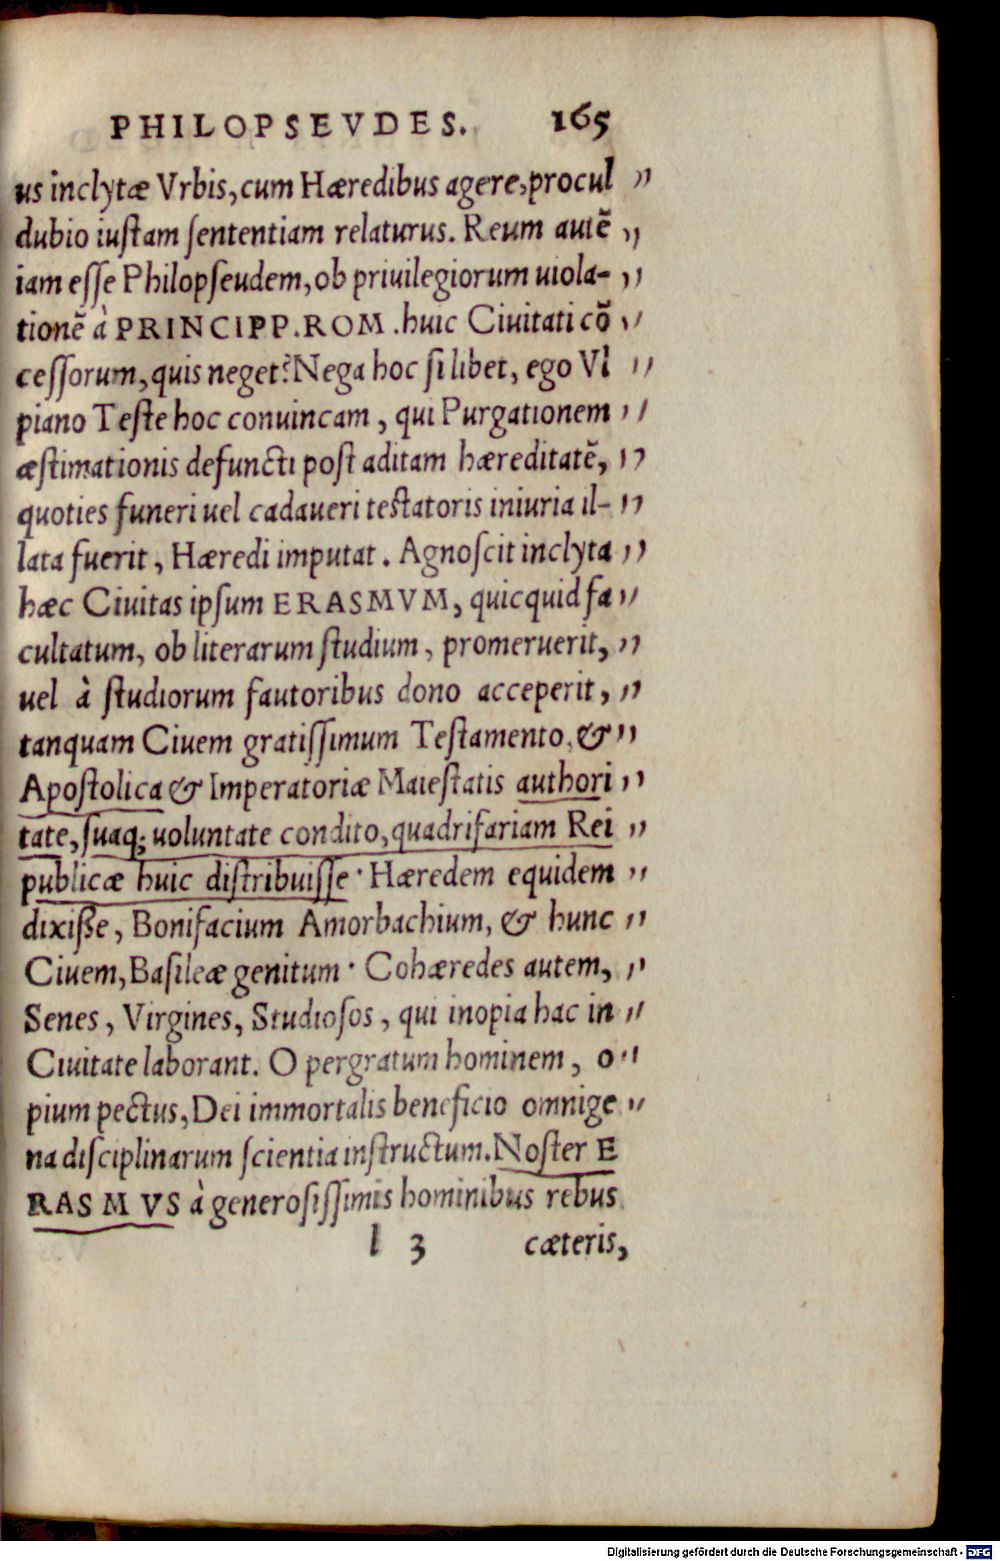 PHILOPSEVDES. 165
us inclytæ Vrbis, cum Hæredibus agere, procul ,,
dubio iustam sententiam relaturus. Reum autē ,,
iam esse Philopseudem, ob priuilegiorum uiola- ,,
tionē à PRINCIPP. ROM. huic Ciuitati cō ,,
cessorum, quis neget? Nega hoc si libet, ego Vl ,,
piano Teste hoc conuincam, qui Purgationem ,,
æstimationis defuncti post aditam hæreditatē, ,,
quoties funeri uel cadaueri testatoris iniuria il- ,,
lata fuerit, Hæredi imputat. Agnoscit inclyta ,,
hæc Ciuitas ipsum ERASMVM, quicquid fa ,,
cultatum, ob literarum studium, promeruerit, ,,
uel à studiorum fautoribus dono acceperit, ,,
tanquam Ciuem gratissimum Testamento, & ,,
Apostolica & Imperatoriæ Maiestatis authori ,,
tate, suaq; uoluntate condito, quadrifariam Rei ,,
publicæ huic distribuisse. Hæredem equidem ,,
dixiße, Bonifacium Amorbachium, & hunc ,,
Ciuem, Basileæ genitum. Cohæredes autem, ,,
Senes, Virgines, Studiosos, qui inopia hac in ,,
Ciuitate laborant. O pergratum hominem, o ,,
pium pectus, Dei immortalis beneficio omnige ,,
na disciplinarum scientia instructum. Noster E
RASMVS à generosissimis hominibus rebus
l 3 cæteris,
Digitalisierung gefördert durch die Deutsche Forschungsgemeinschaft - DFG